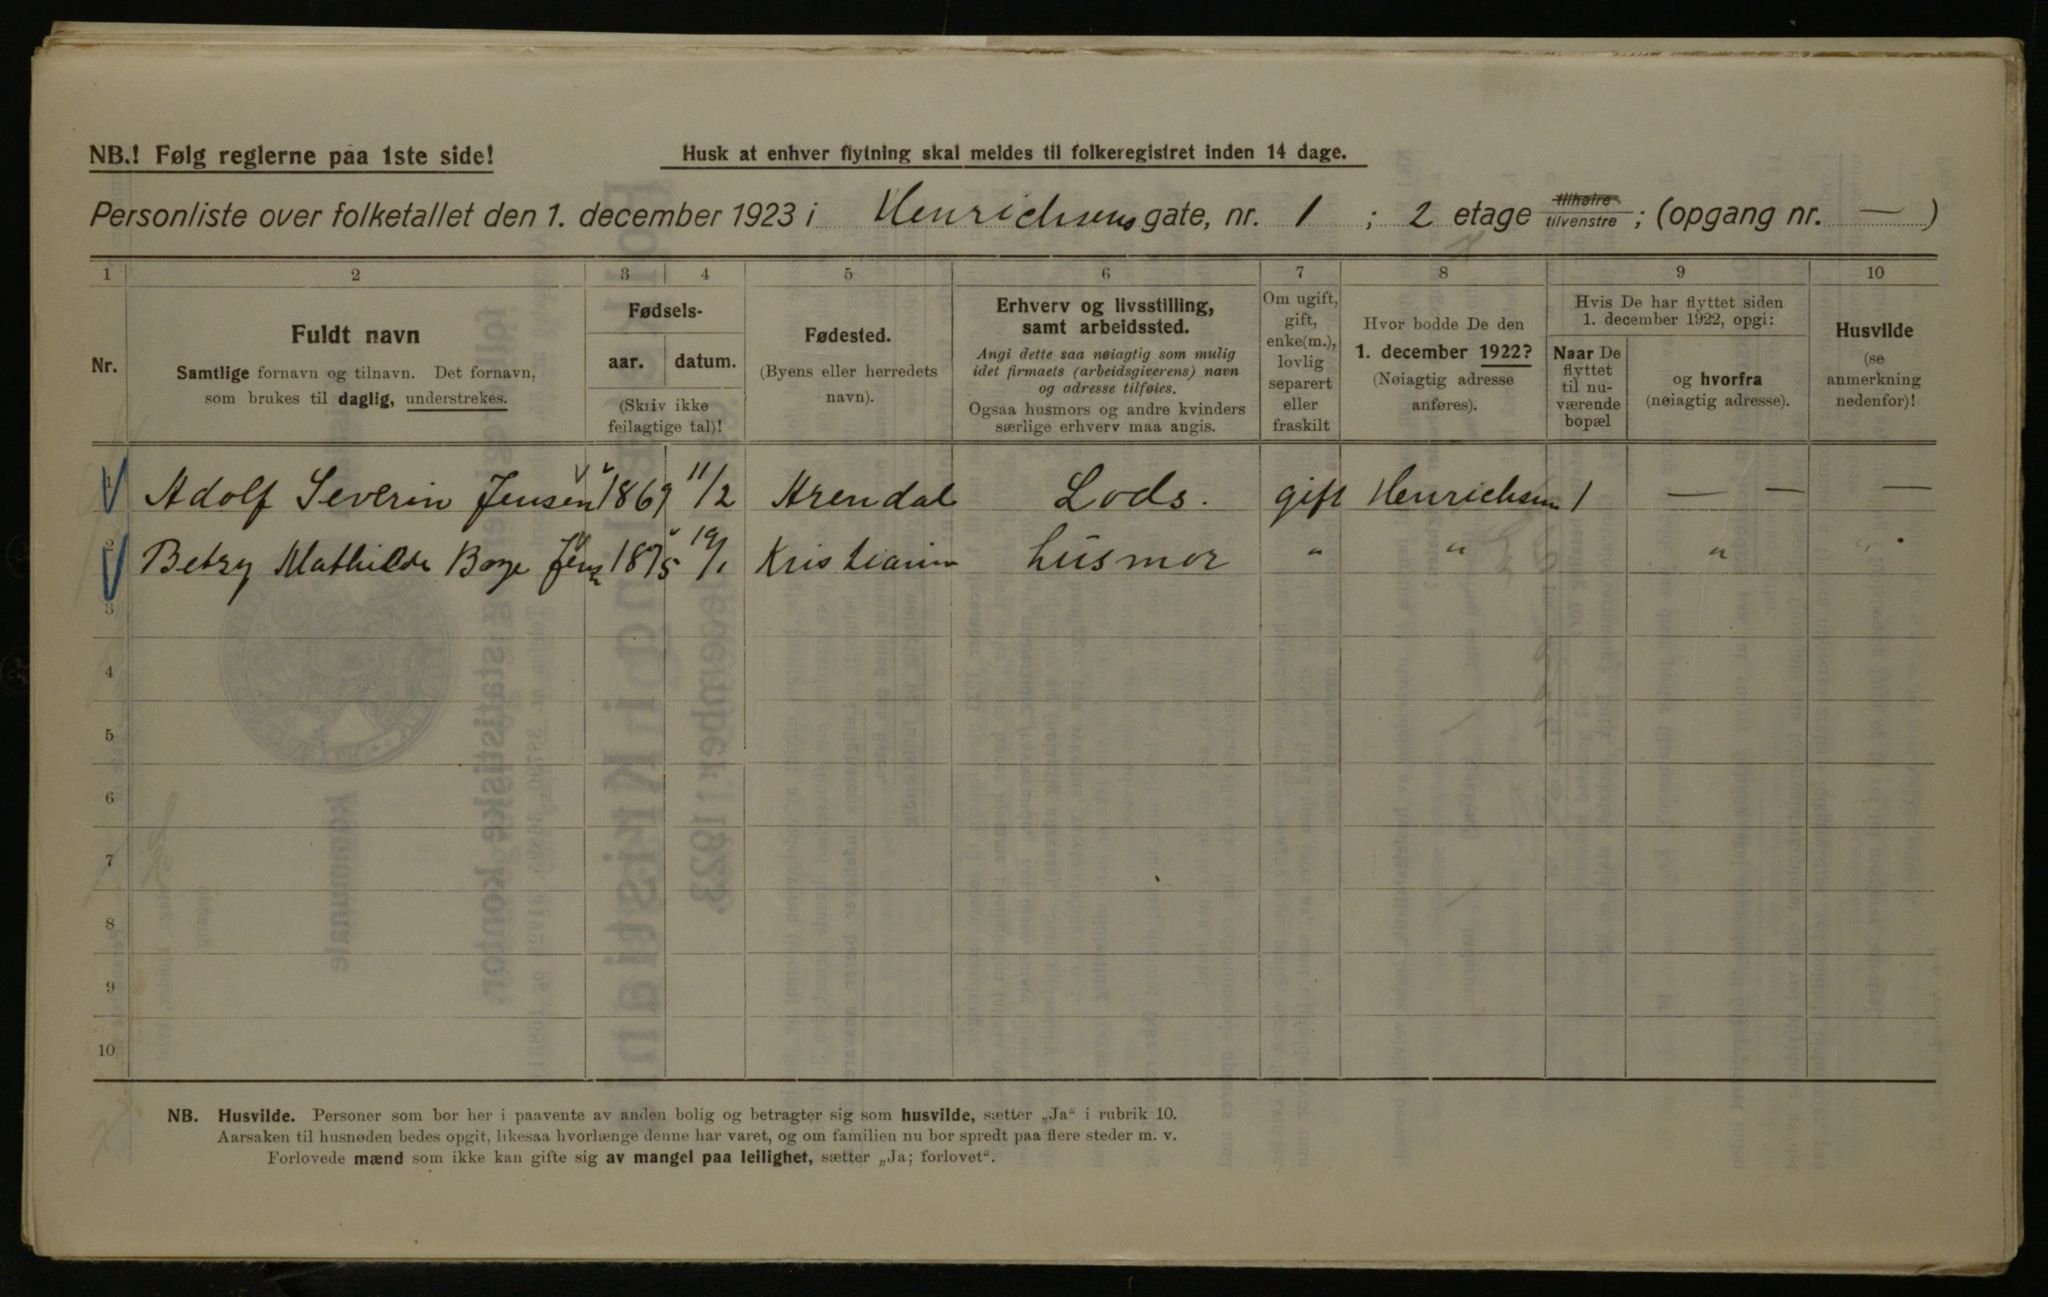 NB.! Følg reglerne paa 1ste side!
Husk at enhver flytning skal meldes til folkeregistret inden 14 dage.
Personliste over folketallet den 1. december 1923 i Henrichsens gate, nr. 1 ; 2 etage tilhøire tilvenstre ; (opgang nr. — )
1 2 3 4 5 6 7 8 9 10
Nr.
Fuldt navn
Samtlige fornavn og tilnavn. Det fornavn,
som brukes til daglig, understrekes.
Fødsels-
aar. datum.
(Skriv ikke
feilagtige tal)!
Fødested.
(Byens eller herredets
navn).
Erhverv og livsstilling,
samt arbeidssted.
Angi dette saa nøiagtig som mulig
idet firmaets (arbeidsgiverens) navn
og adresse tilføies.
Ogsaa husmors og andre kvinders
særlige erhverv maa angis.
Om ugift,
gift,
enke(m.),
lovlig
separert
eller
fraskilt
Hvor bodde De den
1. december 1922?
(Nøiagtig adresse
anføres).
Hvis De har flyttet siden
1. december 1922, opgi:
Naar De
flyttet
til nu-
værende
bopæl
og hvorfra
(nøiagtig adresse).
Husvilde
(se
anmerkning
nedenfor)!
1 Adolf Severin Jensen 1869 11/2 Arendal Lods. gift Henrichsens 1 — — —
2 Betzy Mathilde Jens 1875 19/1 Kristiania husmor " " " "
3
4
5
6
7
8
9
10
NB. Husvilde. Personer som bor her i paavente av anden bolig og betragter sig som husvilde, sætter „Ja“ i rubrik 10.
Aarsaken til husnøden bedes opgit, likesaa hvorlænge denne har varet, og om familien nu bor spredt paa flere steder m. v.
Forlovede mænd som ikke kan gifte sig av mangel paa leilighet, sætter „Ja; forlovet“.